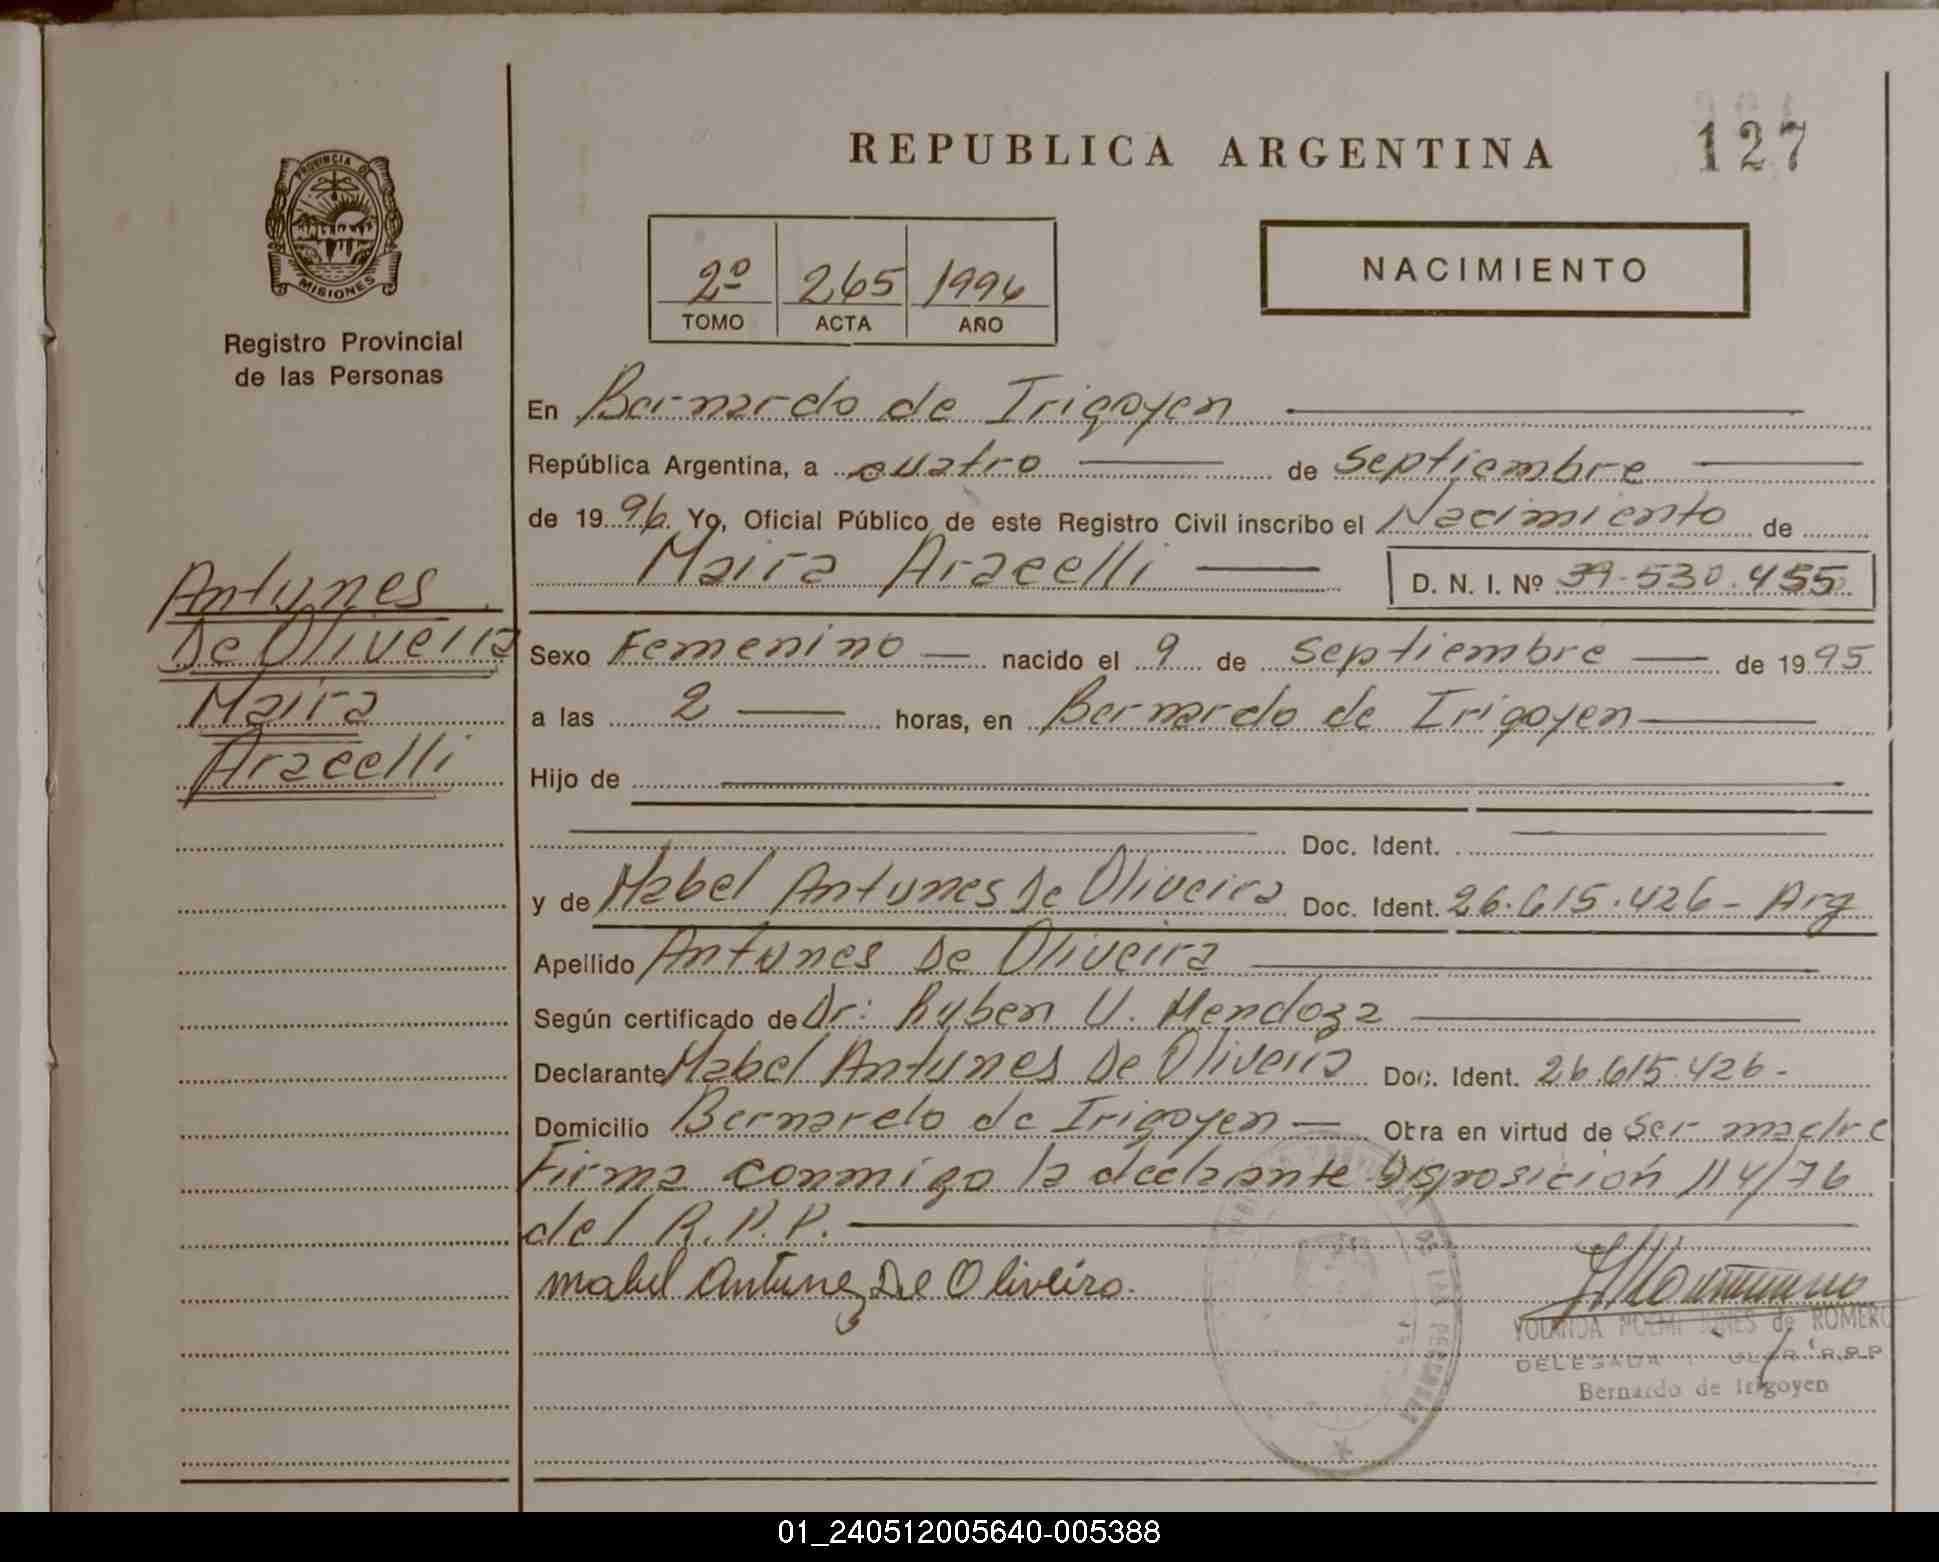 REPUBLICA ARGENTINA
127
PROVINCIA DE
MISIONES
Registro Provincial
de las Personas
2º 265 1996
TOMO ACTA AÑO
NACIMIENTO
En Bernardo de Irigoyen
República Argentina, a cuatro de Septiembre
de 1996. Yo, Oficial Público de este Registro Civil inscribo el Nacimiento de
Maira Aracelli D. N. I. Nº 39.530.455
Antunes
De Oliveira
Maira
Aracelli
Sexo Femenino nacido el 9 de Septiembre de 1995
a las 2 horas, en Bernardo de Irigoyen
Hijo de
Doc. Ident.
y de Mabel Antunes De Oliveira Doc. Ident. 26.615.426 - Arg
Apellido Antunes De Oliveira
Según certificado de Dr: Ruben U. Mendoza
Declarante Mabel Antunes De Oliveira Doc. Ident. 26.615.426-
Domicilio Bernardo de Irigoyen Obra en virtud de Ser madre
Firma conmigo la declarante Disposición 114/76
del R.P.P.
Mabel Antunez De Oliveira.
YOLANDA NOEMI de ROMERO
DELEGADA R.P.P
Bernardo de Irigoyen
DE LAS PERSONAS
01_240512005640-005388